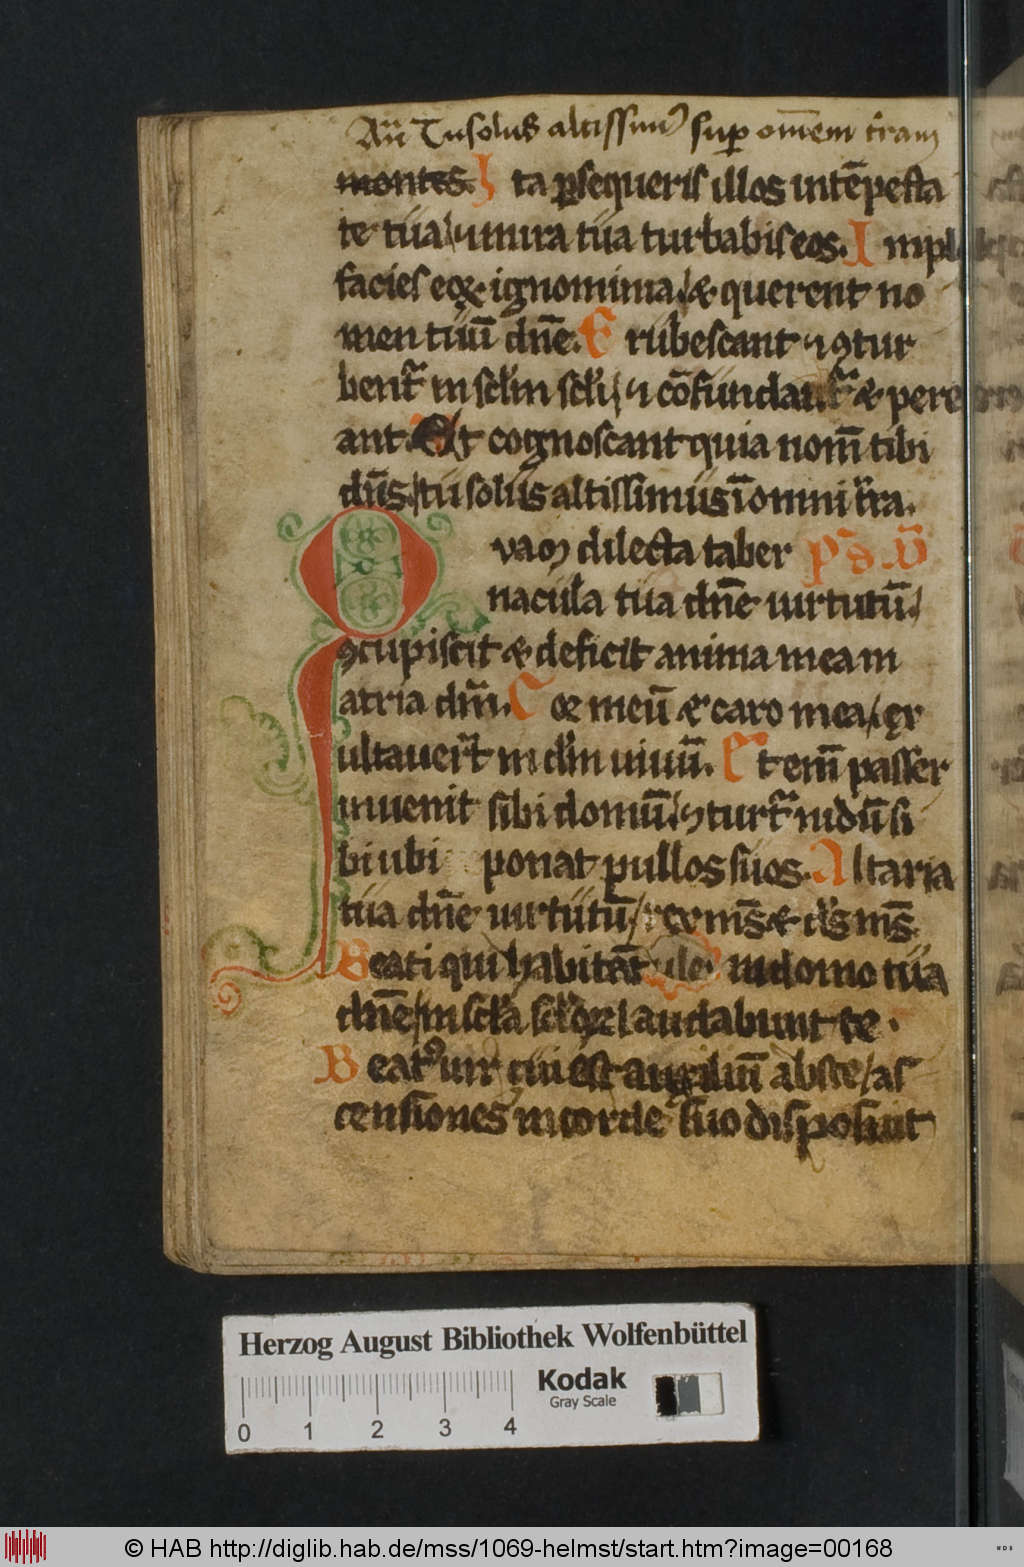 Añ Tu solus altissimꝰ suꝑ om̄em t̄ram
montes. I ta ꝑsequeris illos in tēpesta
te tua / ⁊ in ira tua turbabis eos. I mple
facies eoꝝ ignominia / & querent no
men tuū dn̄e. E rubescant ⁊ ꝯtur
bent᷑ in sc̄l'm sc̄l'i / ⁊ cōfundant᷑ & pere
ant. Et cognoscant quia nom̄ tibi
dn̄s / tu solus altissimus ī omni t̄ra.
Q vam dilecta taber
nacula tua dn̄e uirtutū /
ꝯcupiscit & deficit anima mea in
atria dn̄i. C or meū & caro mea / ex
ultauer̄t in d'm uiuū. E t eni̅ passer
inuenit sibi domū / ⁊ turt᷑ nidū si
bi ubi ponat pullos suos. A ltaria
tua dn̄e uirtutū / rex m̄s & d's m̄s.
B eati qui habitāt in domo tua
dn̄e / in sc̄l'a sc̄l'oꝝ laudabunt te.
B eatꝰ uir cui est auxiliū abs te / as
censiones in corde suo disposuit
Herzog August Bibliothek Wolfenbüttel
0 1 2 3 4
Kodak
Gray Scale
© HAB http://diglib.hab.de/mss/1069-helmst/start.htm?image=00168